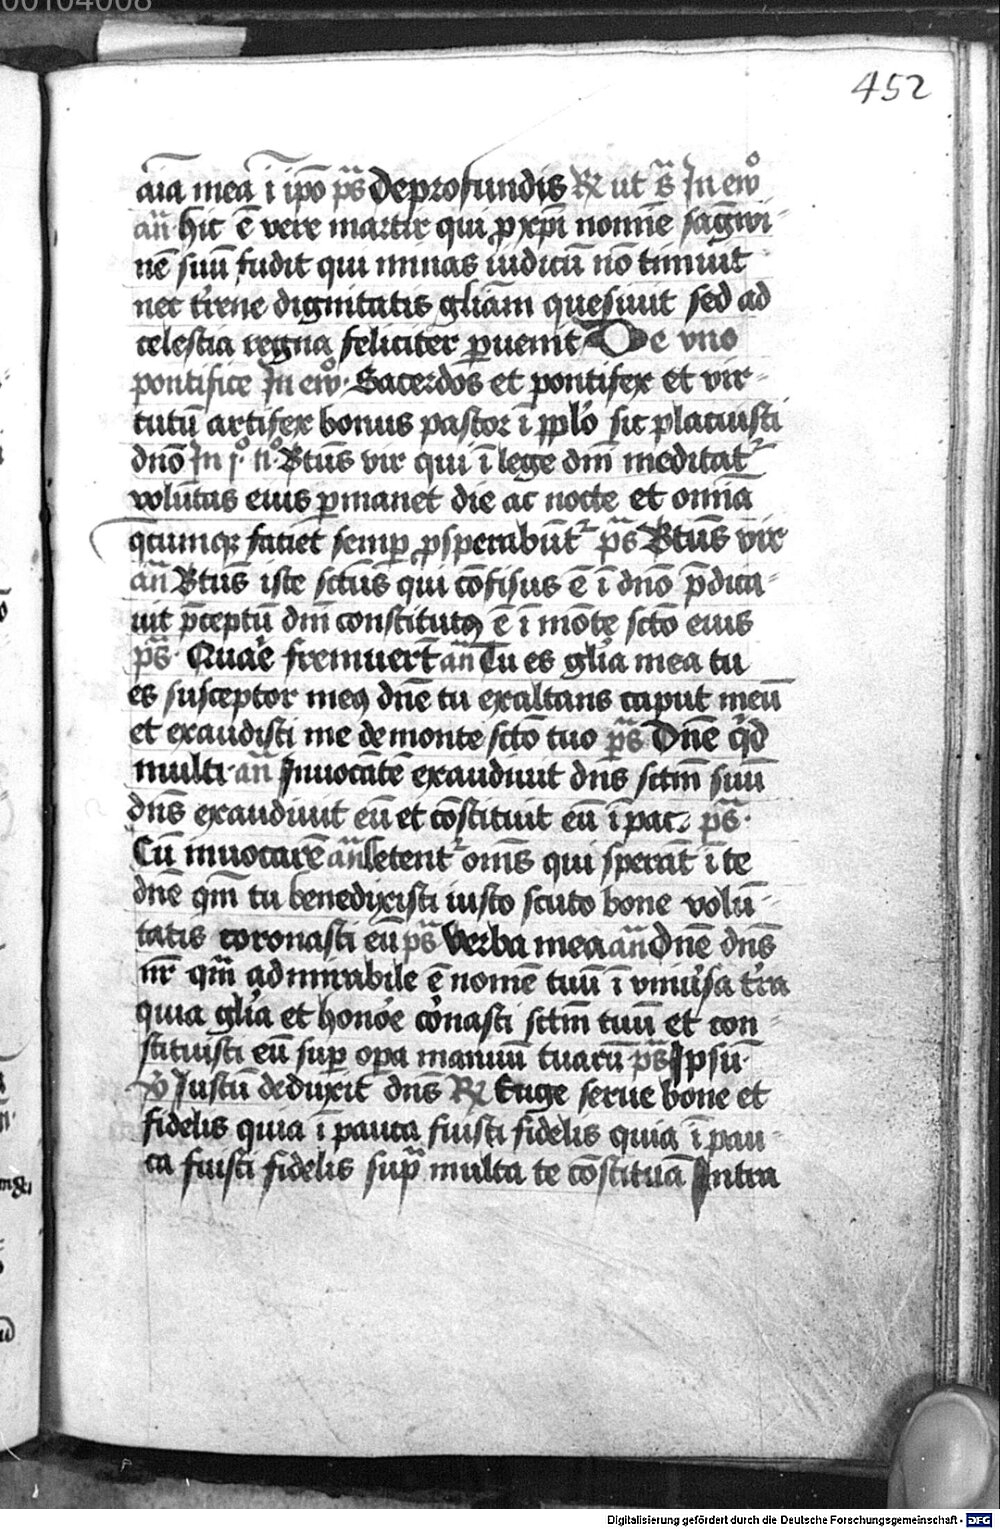 00104008
452
aīa mea ī ip̄o ps̄ de profundis ℟ ut s̄ In eu͞o
an̄ hic ē vere martir qui ꝓ xp̄i nomīe sāgwi⸗
nē suū fudit qui minas iudicū nō timuit
nec t'rene dignitatis glīam quesiuit sed ad
celestia regna feliciter ꝑuenit De vno
pontifice In euō Sacerdos et pontifex et vir⸗
tutū artifex bonus pastor ī pplō sic placuisti
dnō In j͛ n͛ Btūs vir qui ī lege dnī meditat᷑
volūtas eius ꝑmanet die ac nocte et omīa
q̄cumqꝫ faciet semꝑ ꝓsperabūt᷑ ps̄ Btūs vir
an̄ Btūs iste sctūs qui cōfisus ē ī dnō p̄dica⸗
uit p̄ceptū dnī constitutꝰ ē ī mōte sctō eius
ps̄ Quar̄e fremuer̄t an̄ Tu es glīa mea tu
es susceptor meꝰ dnē tu exaltans caput meū
et exaudisti me de monte sctō tuo ps̄ Dnē qͥd
multi an̄ Inuocātē exaudiuit dns̄ sctm̄ suū
dns̄ exaudiuit eū et cōstituit eū ī pac̄ ps̄
Cū inuocarē an̄ letent᷑ oms̄ qui sperāt ī te
dnē qm̄ tu benedixisti iusto scuto bone volū⸗
tatis coronasti eū ps̄ Verba mea an̄ Dnē dns̄
nr̄ qm̄ admirabile ē nomē tuū ī vniu'sa t'ra
quia glīa et honōe cōnasti sctm̄ tuū et con⸗
stituisti eū suꝑ oꝑa manuū tuarū ps̄ Ipsū
℣ Iustū deduxit dns̄ ℟ Euge serue bone et
fidelis quia ī pauca fuisti fidelis quia ī pau⸗
ca fuisti fidelis supᵃ multa te cōstituā Intra
Digitalisierung gefördert durch die Deutsche Forschungsgemeinschaft - DFG